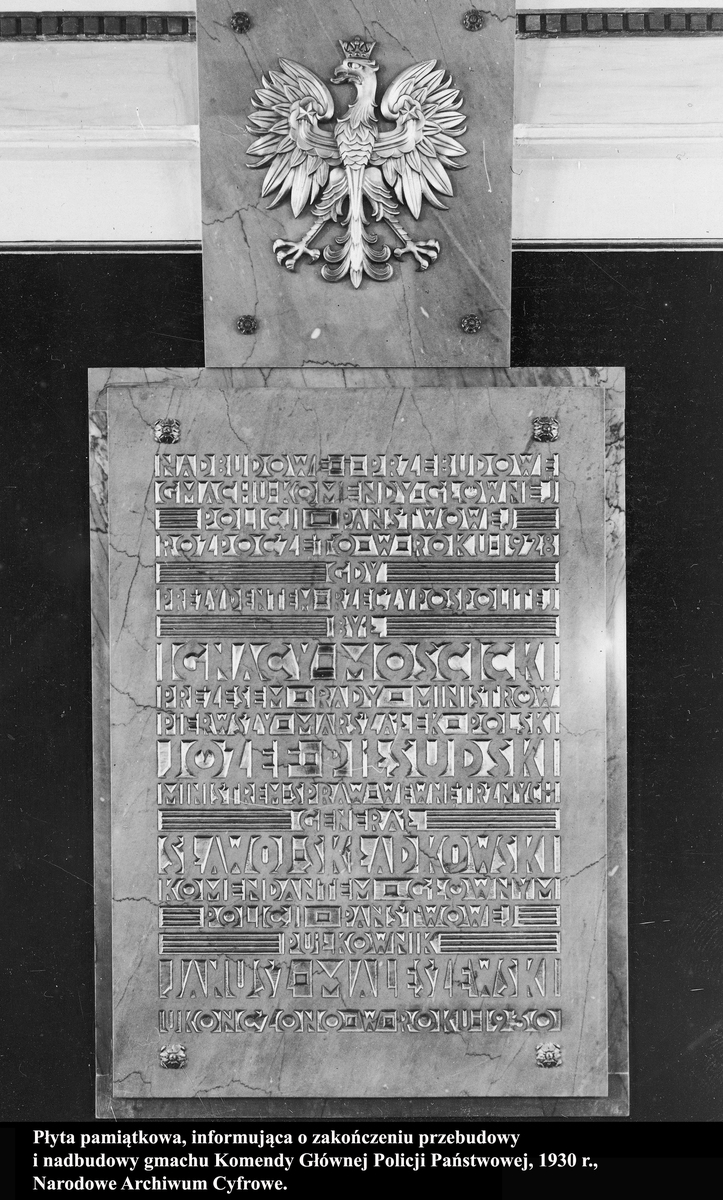 NADBUDOWĘ I PRZEBUDOWĘ
GMACHU KOMENDY GŁÓWNEJ
POLICJI PAŃSTWOWEJ
ROZPOCZĘTO W ROKU 1928
GDY
PREZYDENTEM RZECZYPOSPOLITEJ
BYŁ
IGNACY MOŚCICKI
PREZESEM RADY MINISTRÓW
PIERWSZY MARSZAŁEK POLSKI
JÓZEF PIŁSUDSKI
MINISTREM SPRAW WEWNĘTRZNYCH
GENERAŁ
SŁAWOJ SKŁADKOWSKI
KOMENDANTEM GŁÓWNYM
POLICJI PAŃSTWOWEJ
PUŁKOWNIK
JANUSZ MALESZEWSKI
UKOŃCZONO W ROKU 1930
Płyta pamiątkowa, informująca o zakończeniu przebudowy
i nadbudowy gmachu Komendy Głównej Policji Państwowej, 1930 r.,
Narodowe Archiwum Cyfrowe.